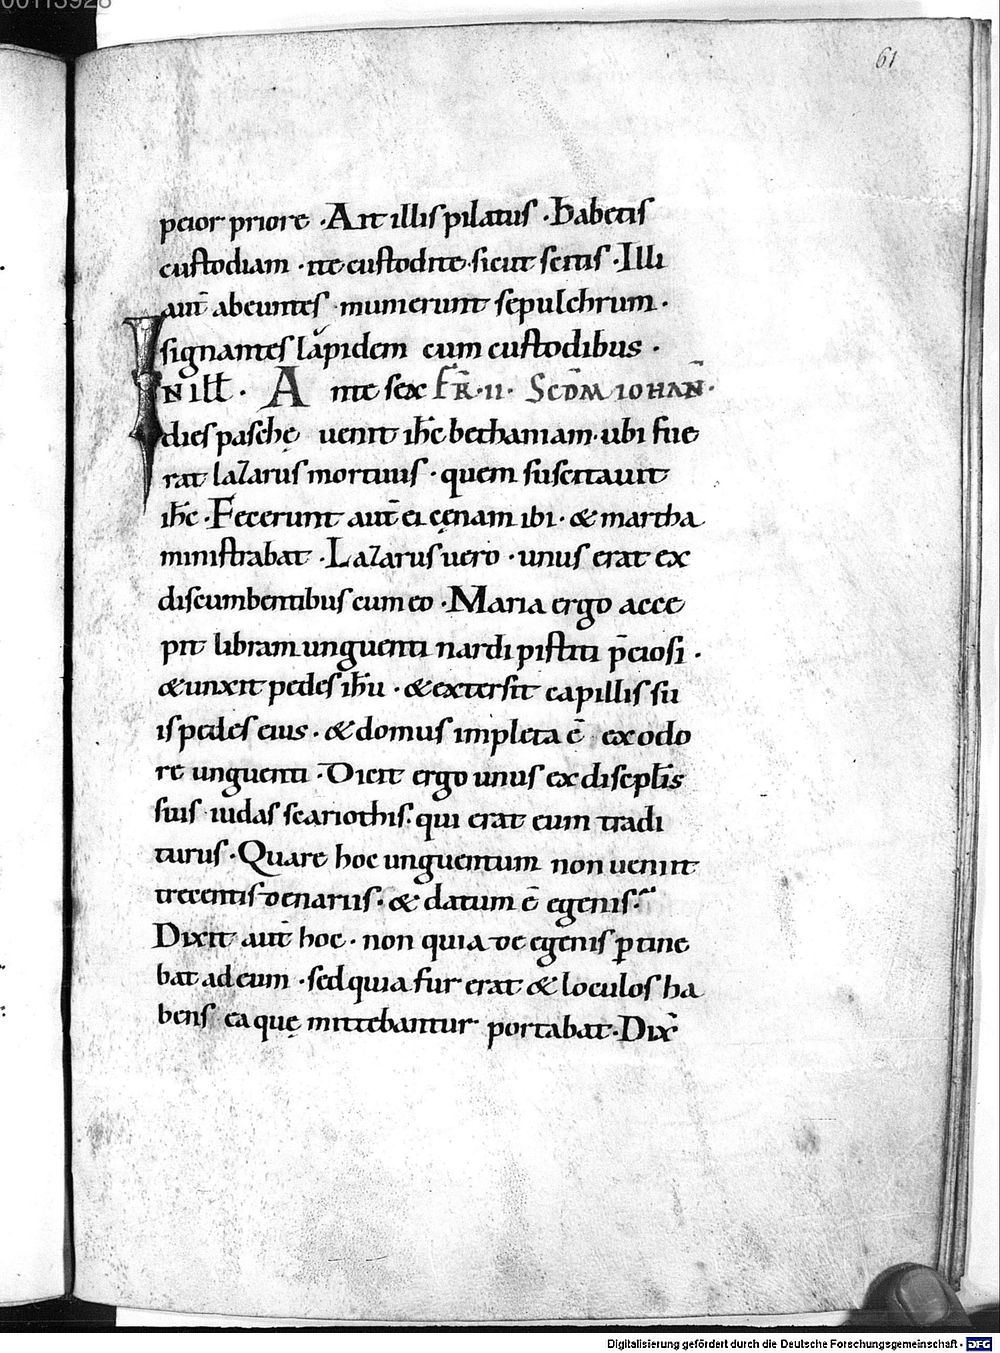 00113928
61
peior priore · Ait illis pilatus · Habetis
custodiam · ite custodite sicut scitis · Illi
aut̄ abeuntes · munierunt sepulchrum ·
signantes lapidem cum custodibus ·
IN illt̄ · Ante sex FR̄ · II · SCDM IOHAN̄ ·
dies paschę uenit ih̄c bethaniam · ubi fue
rat lazarus mortuus · quem suscitauit
ih̄c · Fecerunt aut̄ ei cęnam ibi · & martha
ministrabat · Lazarus uero · unus erat ex
discumbentibus cum eo · Maria ergo acce
pit libram unguenti nardi pistici p̄ciosi ·
& unxit pedes ih̄u · & extersit capillis su
is pedes eius · & domus impleta ē ex odo
re unguenti · Dicit ergo unus ex discipl̄is
suis iudas scariothis · qui erat eum tradi
turus · Quare hoc unguentum non ueniit
trecentis denariis · & datum ē egenis ·
Dixit aut̄ hoc · non quia de egenis ꝑtine
bat ad eum · sed quia fur erat & loculos ha
bens ea quę mittebantur portabat · Dix̄
Digitalisierung gefördert durch die Deutsche Forschungsgemeinschaft - DFG